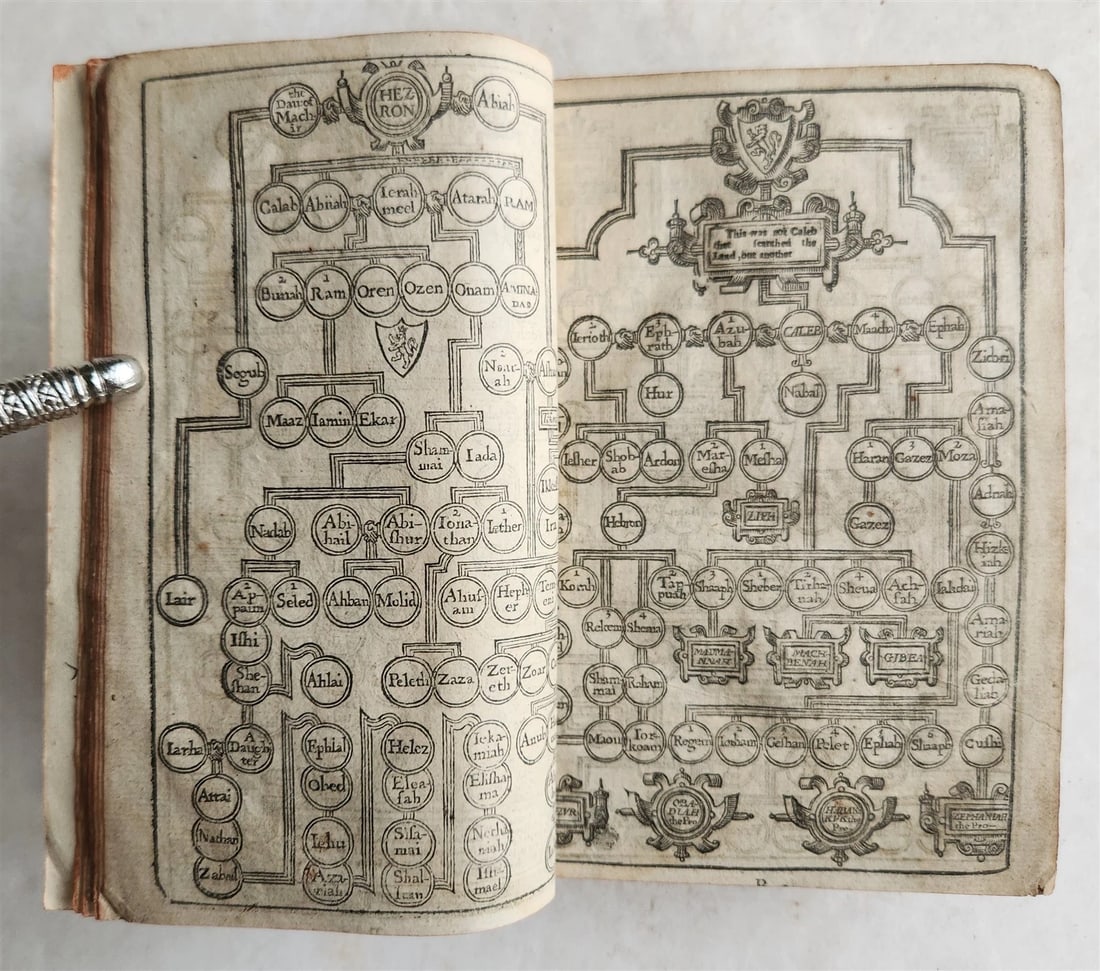 the
Dau. of
Mach-
ir
HEZ
RON
Abiah
Calab
Abiiah
Ierah
meel
Atarah
RAM
2
Bunah
1
Ram
Oren
Ozen
Onam
AMINA
DAB
Segub
Maaz
Iamin
Ekar
2
Noar-
ah
Sham-
mai
Iada
Nadab
Abi-
hail
Abi-
shur
2
Iona-
than
1
Iether
Iair
2
Ap-
paim
1
Seled
Ahban
Molid
Ahus-
am
Heph
er
Tem
Ishi
She-
shan
Ahlai
Peleth
Zaza
Zer-
eth
Zoar
Iarha
A
Daugh
ter
Ephlal
Helez
Ieka-
miah
Anub
Attai
Obed
Elea-
sah
Elisha-
ma
Nathan
Iehu
Sisa-
mai
Netha
niah
Zabad
Aza-
riah
Shal-
lum
Ish-
mael
This was not Caleb
that searched the
Land, but another
2
Ierioth
1
Eph-
rath
1
Azu-
bah
CALEB
4
Maacha
Ephah
Zichri
Hur
Nabal
Ama-
siah
Iesher
Shob-
ab
Ardon
2
Mar-
esha
1
Mesha
1
Haran
3
Gazez
2
Moza
ZIPH
Adnah
Hebron
Gazez
Hizk-
iah
1
Korah
2
Tap-
puah
3
Shaaph
1
Sheber
2
Tirha-
nah
4
Sheua
Ach-
sah
Iahdai
3
Rekem
4
Shema
Ama-
riah
MADMA
NNAH
MACH
BENAH
GIBEA
Sham
mai
Raham
Geda-
liah
Maon
Ior-
koam
1
Regem
2
Iotham
3
Geshan
4
Pelet
5
Ephah
6
Shaaph
Cushi
OBA-
DIAH
the Pro-
HABAK
KVK the
Pro-
ZEPHANIAH
the Pro-